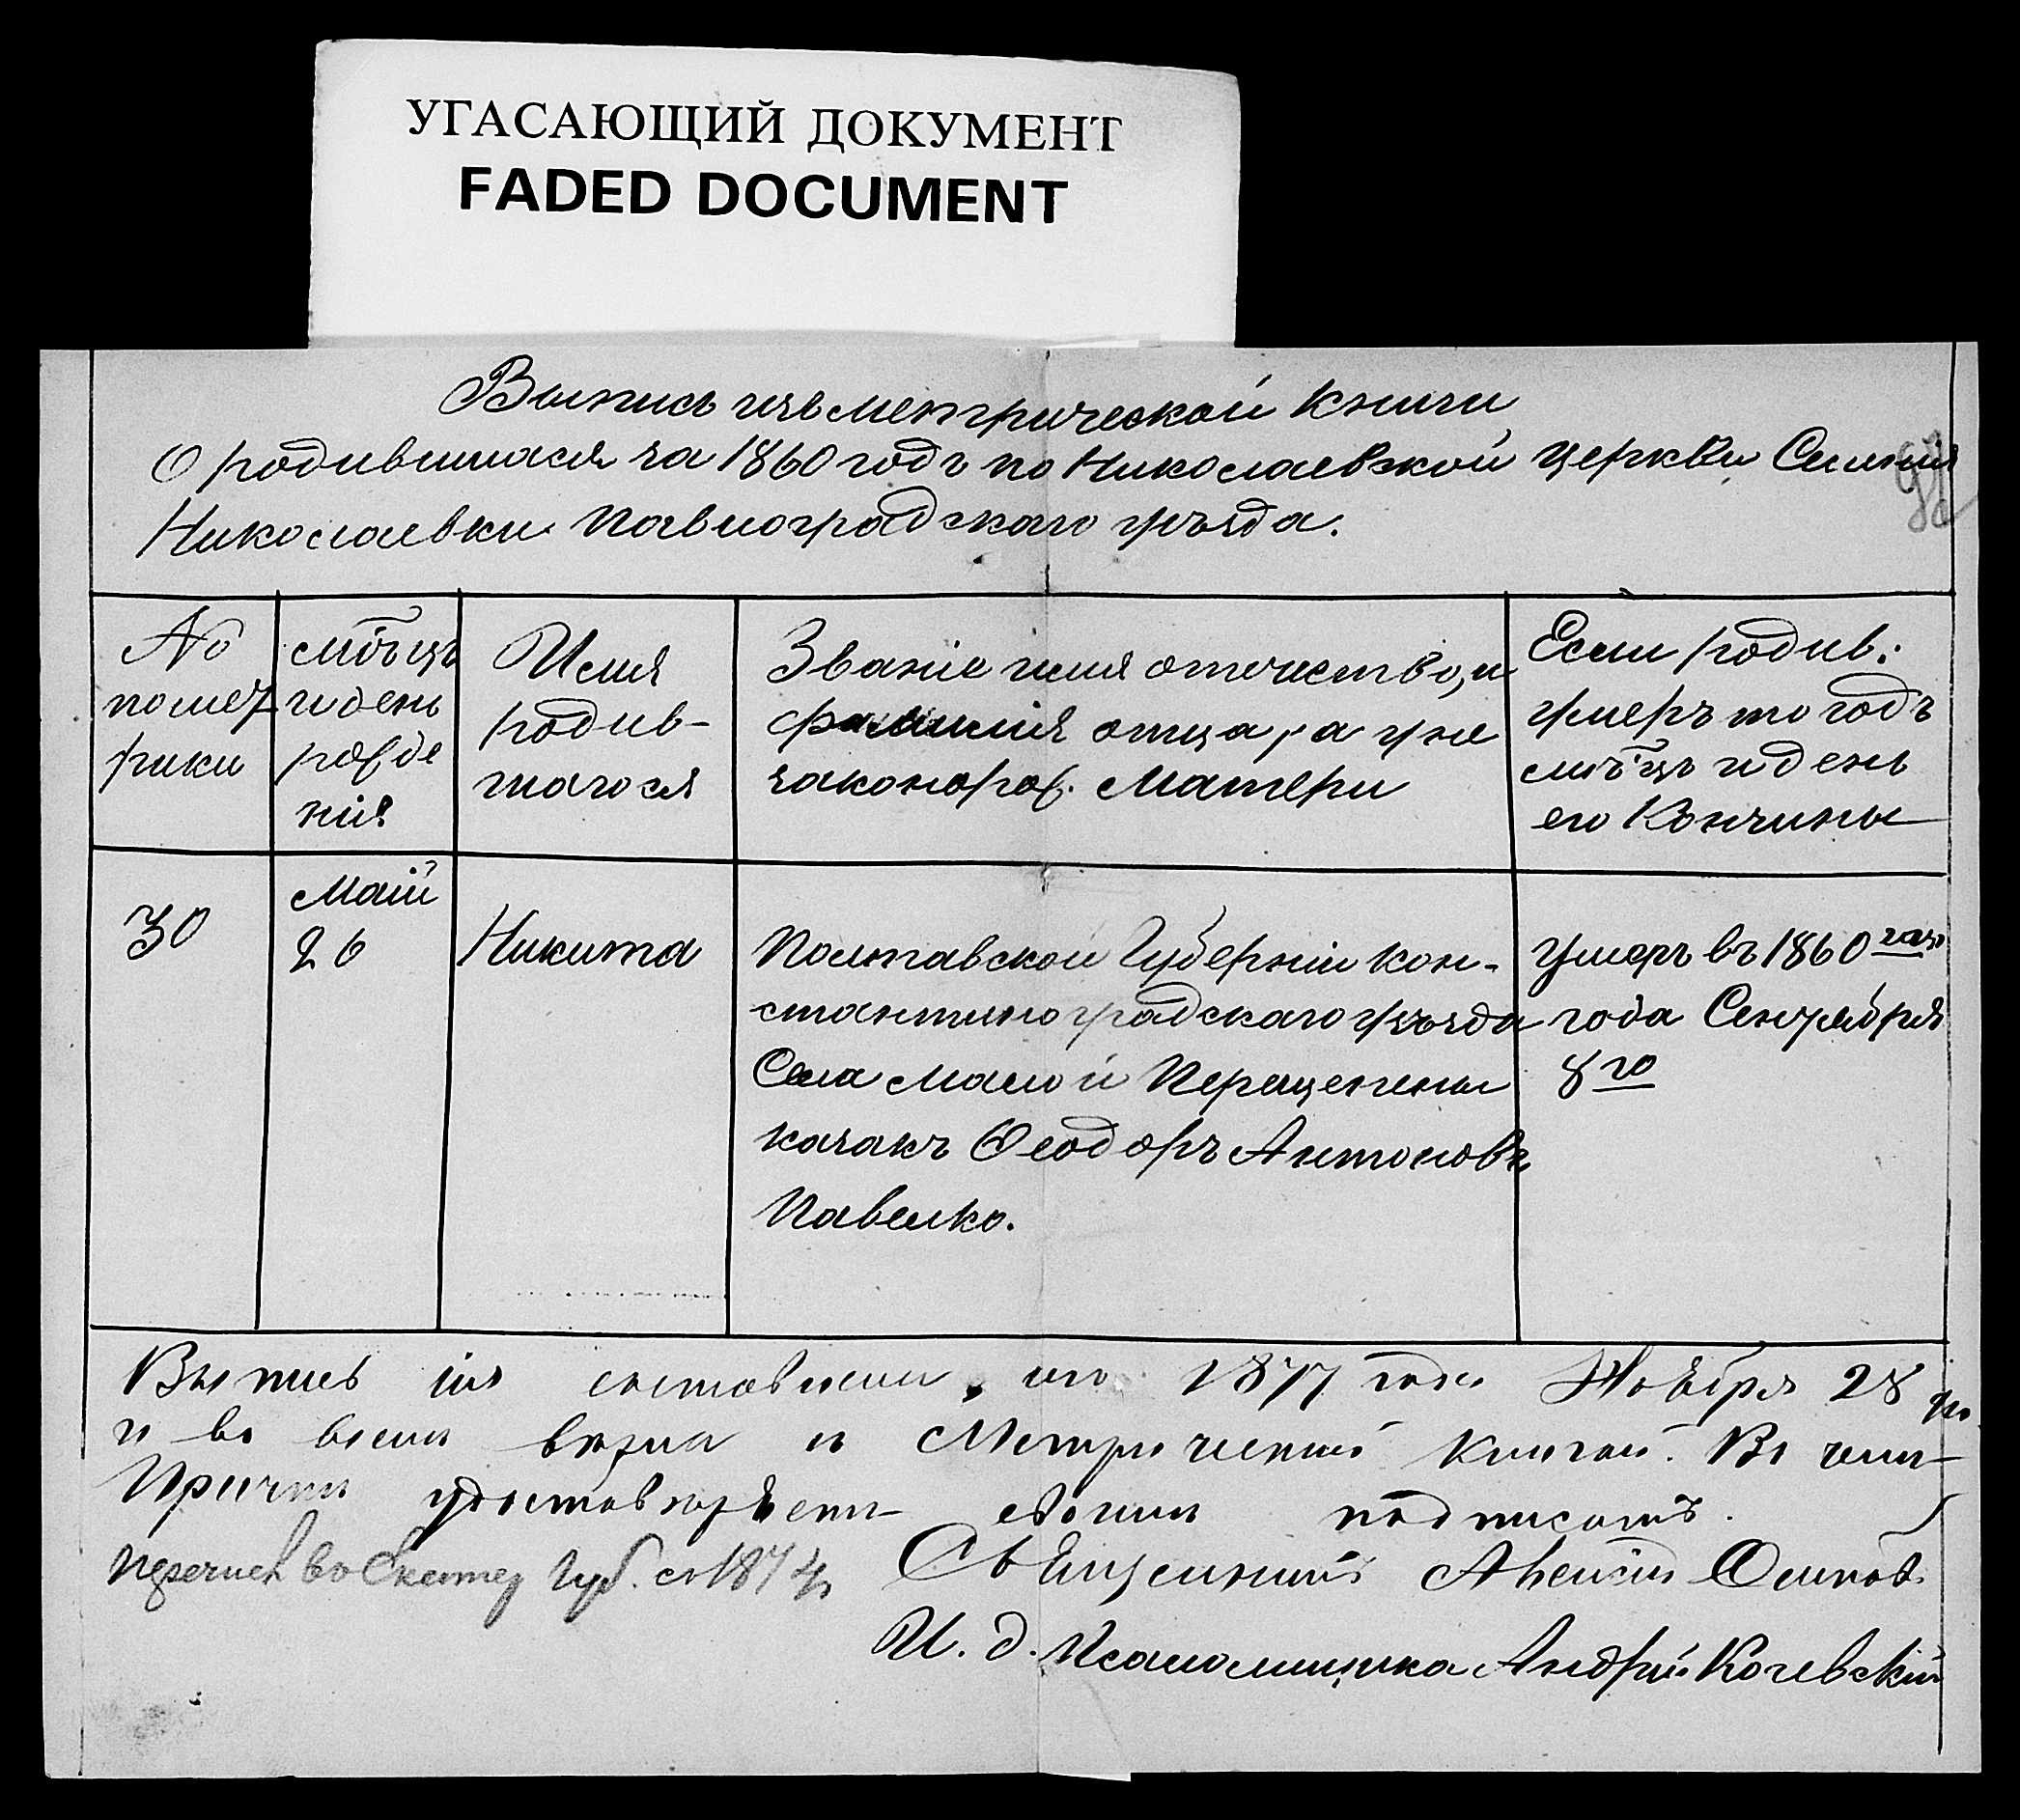 УГАСАЮЩИЙ ДОКУМЕНТ
FADED DOCUMENT
Выпись изъ метрической книги
О родившихся за 1860 годъ по Николаевской церкви Селенія
Николаевки Павлоградскаго уѣзда.
№
по мет
рики
мѣ̃цъ
и день
рожде
нія
Имя
родив-
шагося
Званіе имя отечество, и
фамилія отца, а у не
законорож. Матери
Если родив:
умеръ то годъ
мѣ̃цъ и день
его Кончины
30
Маій
26
Никита
Полтавской Губерніи Кон-
стантиноградскаго уѣзда
Села Малой Перещепены
казакъ Ѳеодоръ Антоновъ
Павелко.
Умеръ въ 1860 го
года Сентября
8 го
Выпись сія составлена 1877 года Ноября 28
и во всемъ вѣрна съ Метрической Книгой. Въ чемъ
Причтъ удостовѣряетъ своимъ подписомъ.
въ Екатер Губ. съ 187
Священникъ Осиповъ
И. д. Псаломщика Андрей Кочевскій